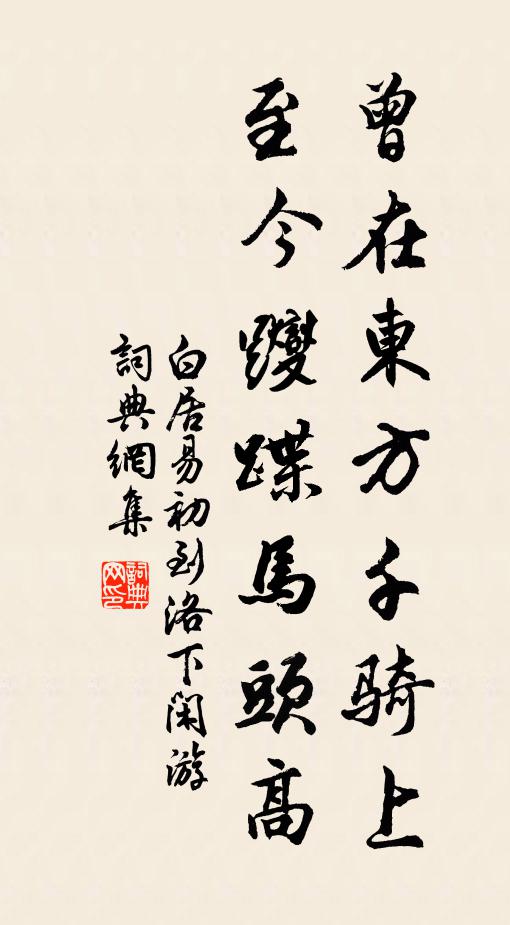 曾在東方千騎上
至今躞蹀馬頭高
白居易初到洛下閑游
詞典網集
詞典
网印